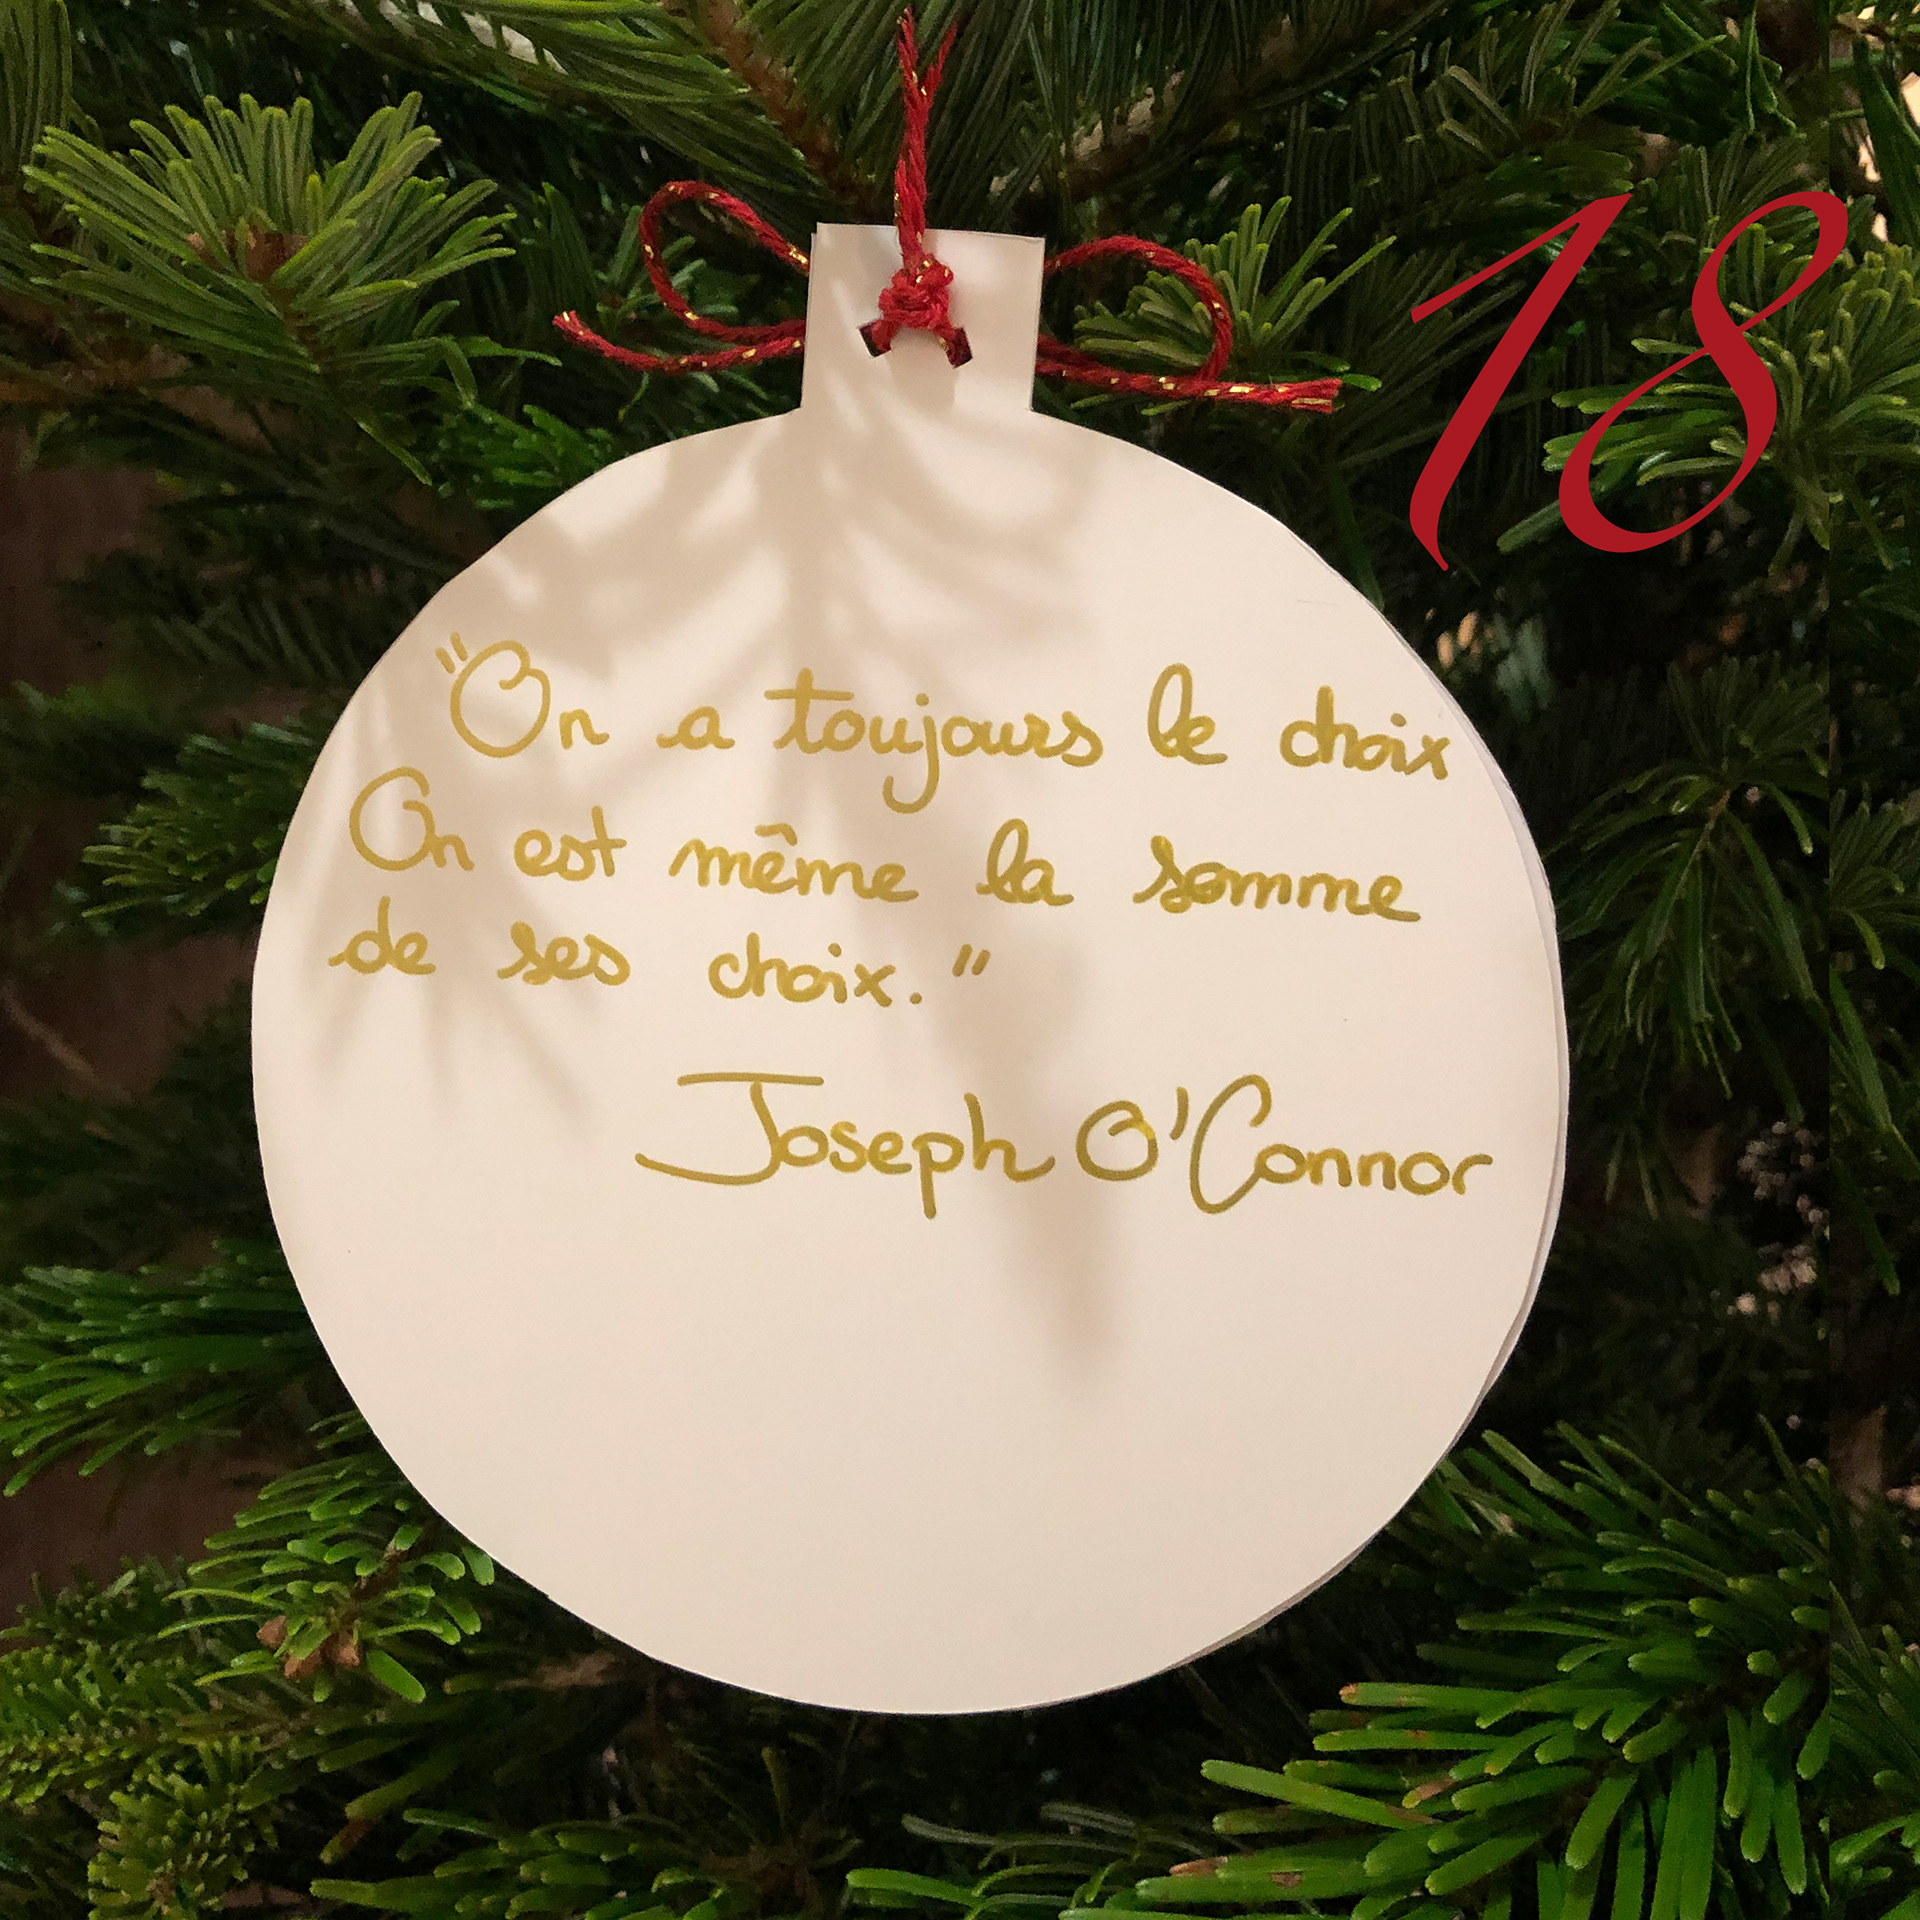 18
"On a toujours le choix
On est même la somme
de ses choix."
Joseph O'Connor